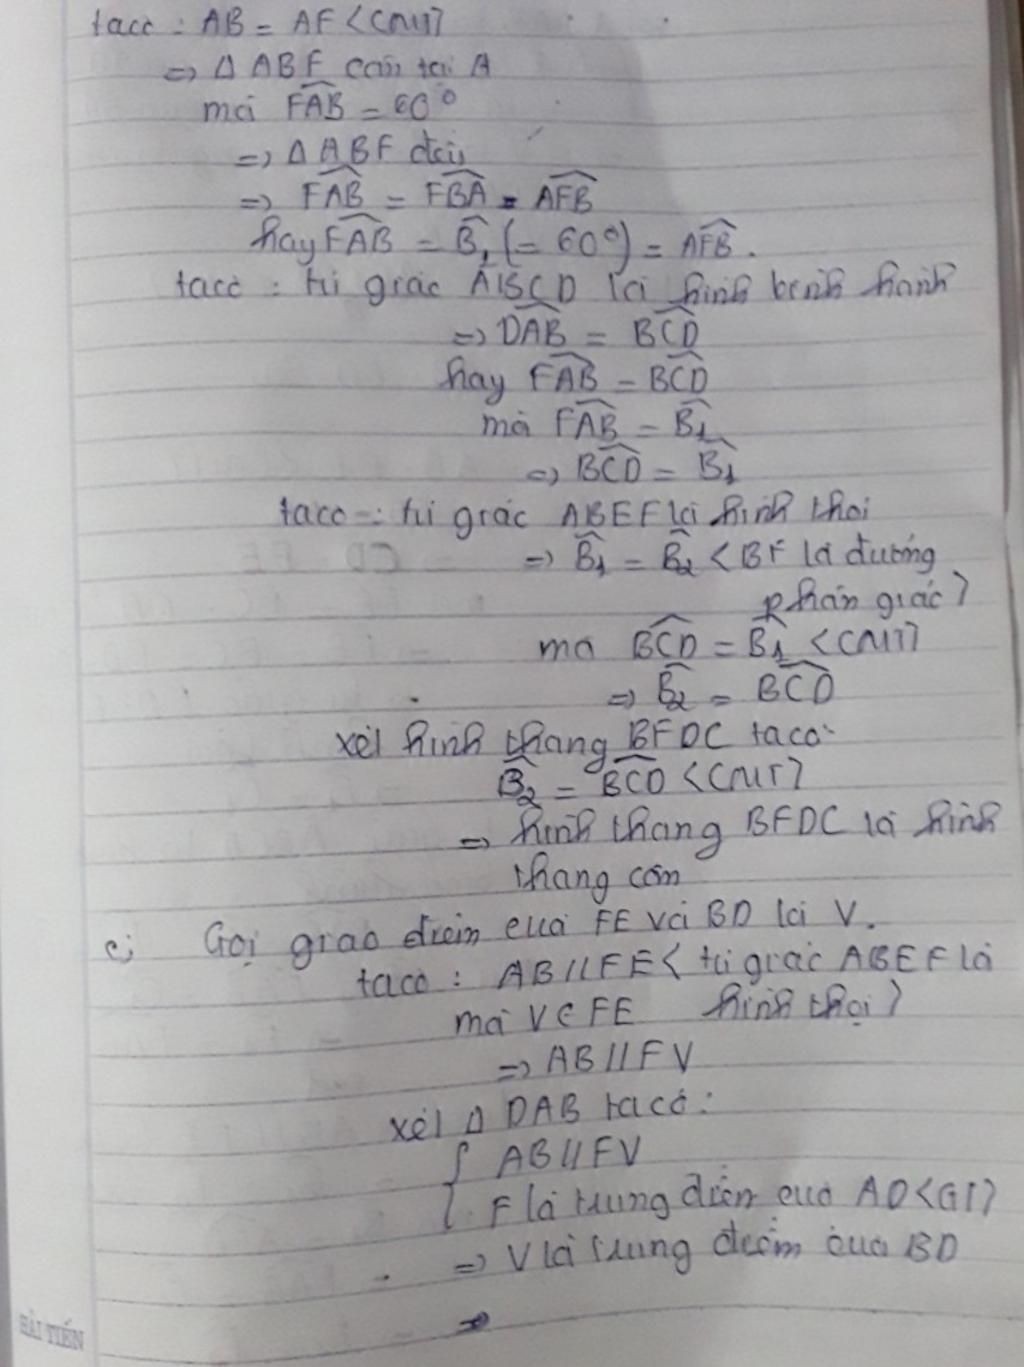 ta có : AB = AF <CMT>
=> Δ ABF cân tại A
mà FAB = 60°
=> Δ ABF đều
=> FAB = FBA = AFB
hay FAB = B1 (= 60°) = AFB.
ta có : tứ giác ABCD là hình bình hành
=> DAB = BCD
hay FAB = BCD
mà FAB = B1
=> BCD = B1
ta có : tứ giác ABEF là hình thoi
=> B1 = B2 <BF là đường
phân giác>
mà BCD = B1 <CMT>
=> B2 = BCD
xét hình thang BFDC ta có:
B2 = BCD <CMT>
=> hình thang BFDC là hình
thang cân
c, Gọi giao điểm của FE và BD là V.
ta có : AB // FE < tứ giác ABEF là
mà V ∈ FE hình thoi >
=> AB // FV
xét Δ DAB ta có :
{ AB // FV
F là trung điểm của AD <GT>
=> V là trung điểm của BD
=>
HẢI TIẾN